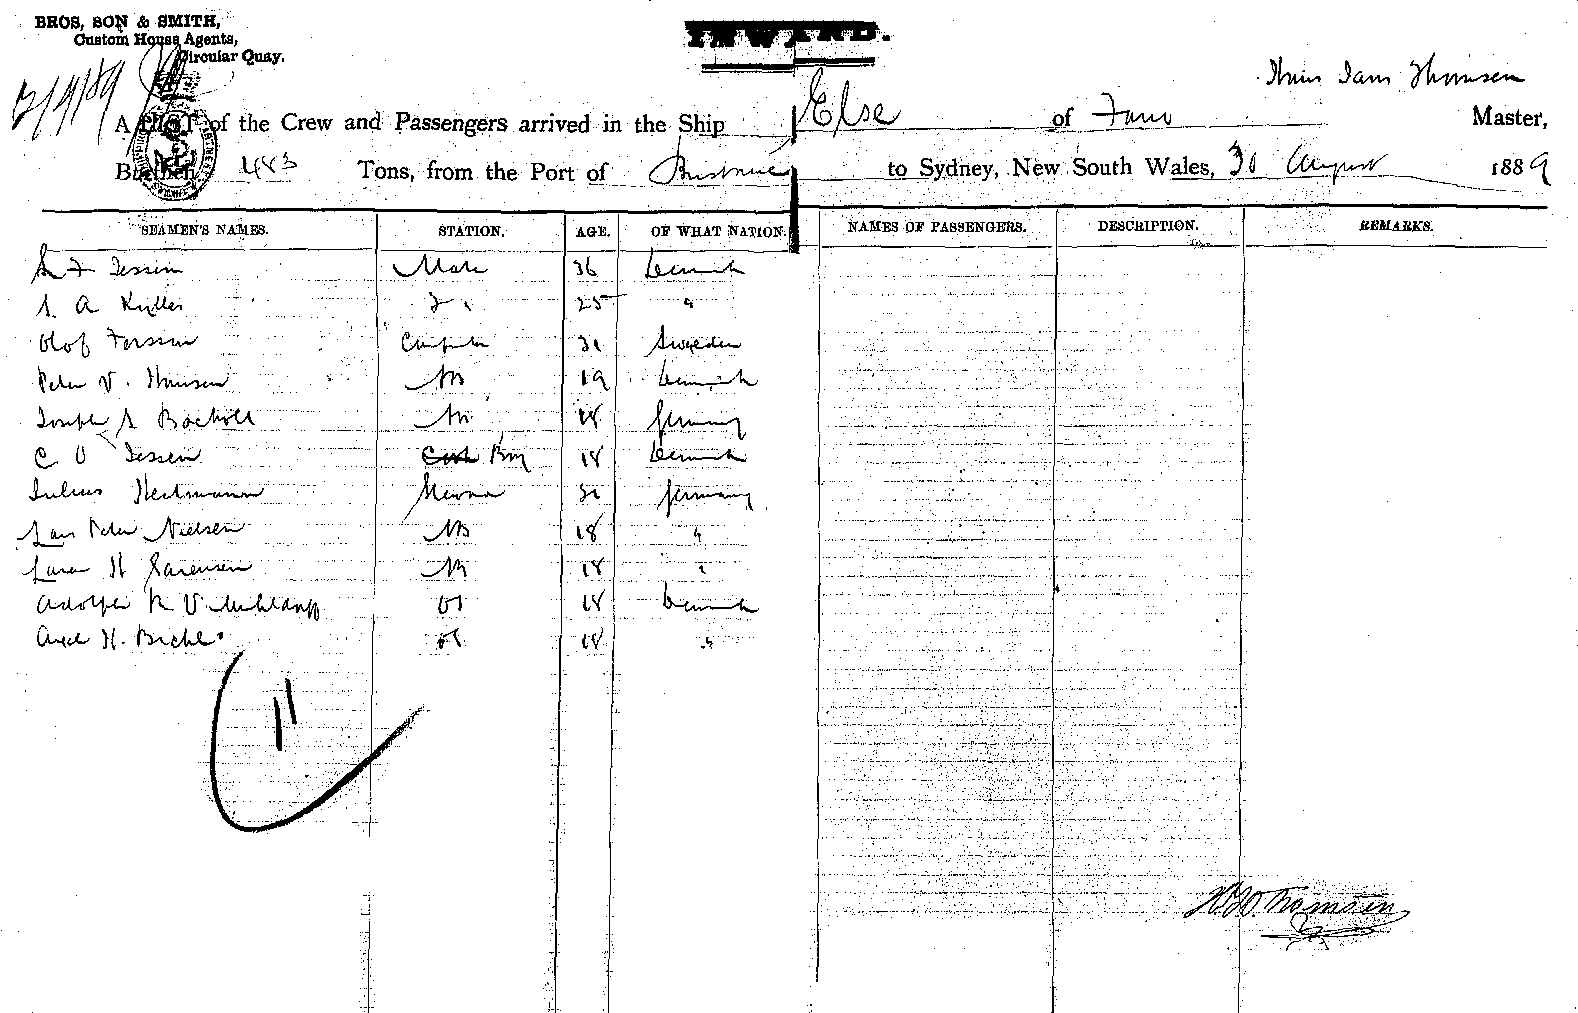 BROS, SON & SMITH,
Custom House Agents,
Circular Quay.
INWARD.
12/9/89
Thomsen
A LIST of the Crew and Passengers arrived in the Ship Else of Fano Master,
Burthen 483 Tons, from the Port of Brisbane to Sydney, New South Wales, 30 August 1889
SEAMEN'S NAMES. STATION. AGE. OF WHAT NATION. NAMES OF PASSENGERS. DESCRIPTION. REMARKS.
Jessen Mate 36 Denmark
A 2 " 25 "
Olof Carpenter Sweden
Peter V. Hansen AB 19 Denmark
Joseph AB 18 Germany
C O Jessen Cook Boy 18 Denmark
Julius Germany
Lars Peter Nielsen AB 18 "
H Sorensen AB 18 "
R V OS 18 Denmark
Axel H. OS 18 "
11
Thomsen